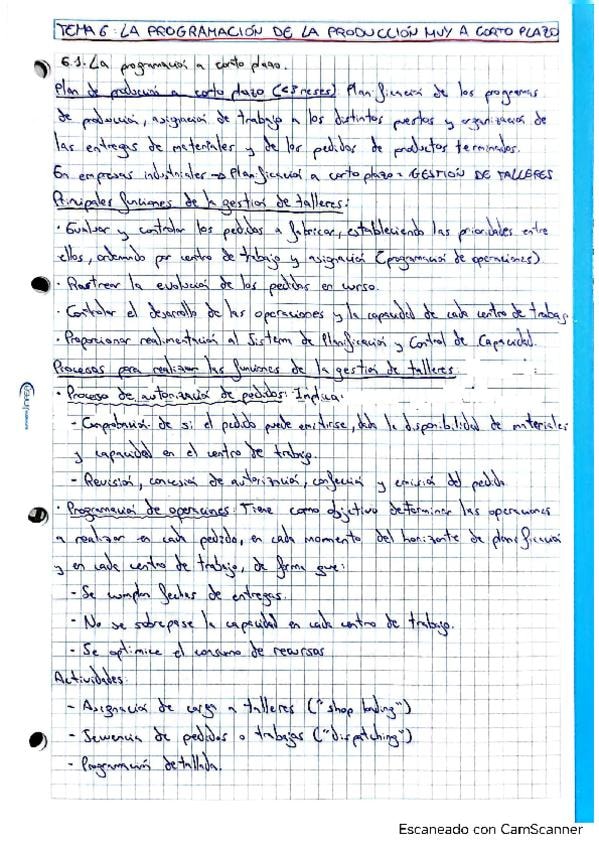 TEMA 6: LA PROGRAMACIÓN DE LA PRODUCCIÓN MUY A CORTO PLAZO
6.1. La programación a corto plazo.
Plan de producción a corto plazo (<3 meses): Planificación de los programas
de producción, asignación de trabajo a los distintos puestos y organización de
las entregas de materiales y de los pedidos de productos terminados.
En empresas industriales → Planificación a corto plazo = GESTIÓN DE TALLERES
Principales funciones de la gestión de talleres:
· Evaluar y controlar los pedidos a fabricar, estableciendo las prioridades entre
ellos, ordenando por centro de trabajo y asignación (programación de operaciones)
· Rastrear la evolución de los pedidos en curso.
· Controlar el desarrollo de las operaciones y la capacidad de cada centro de trabajo.
· Proporcionar realimentación al Sistema de Planificación y Control de Capacidad.
Procesos para realizar las funciones de la gestión de talleres:
· Proceso de autorización de pedidos: Implica:
- Comprobación de si el pedido puede emitirse, dada la disponibilidad de materiales
y capacidad en el centro de trabajo.
- Revisión, concesión de autorización, confección y emisión del pedido.
· Programación de operaciones: Tiene como objetivo determinar las operaciones
a realizar en cada pedido, en cada momento del horizonte de planificación
y en cada centro de trabajo, de forma que:
- Se cumplan fechas de entregas.
- No se sobrepase la capacidad en cada centro de trabajo.
- Se optimice el consumo de recursos
Actividades:
- Asignación de carga a talleres ("shop loading")
- Secuencia de pedidos o trabajos ("dispatching")
- Programación detallada.
Escaneado con CamScanner